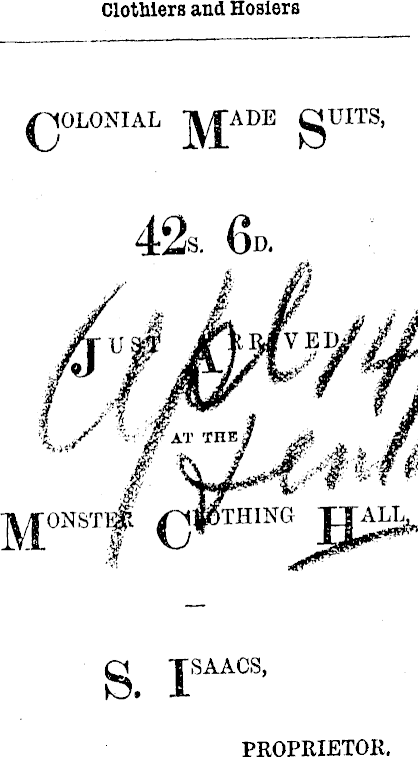 Clothiers and Hosiers
COLONIAL MADE SUITS,
42S. 6D.
JUST ARRIVED
AT THE
MONSTER CLOTHING HALL,
S. ISAACS,
PROPRIETOR.